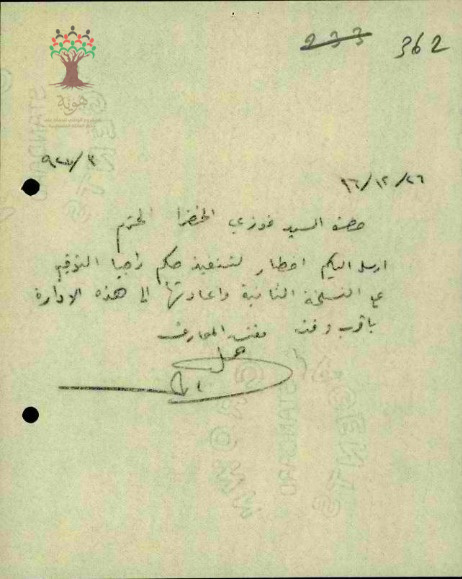 233 362
هوية
١٦/١٢/٢٦
حضرة السيد فوزي الخضرا المحترم
ارسل اليكم اخطار لتنفيذ حكم راجيا التوقيع
على النسخة الثانية واعادتها الى هذه الادارة
باقرب وقت مفتش المعارف